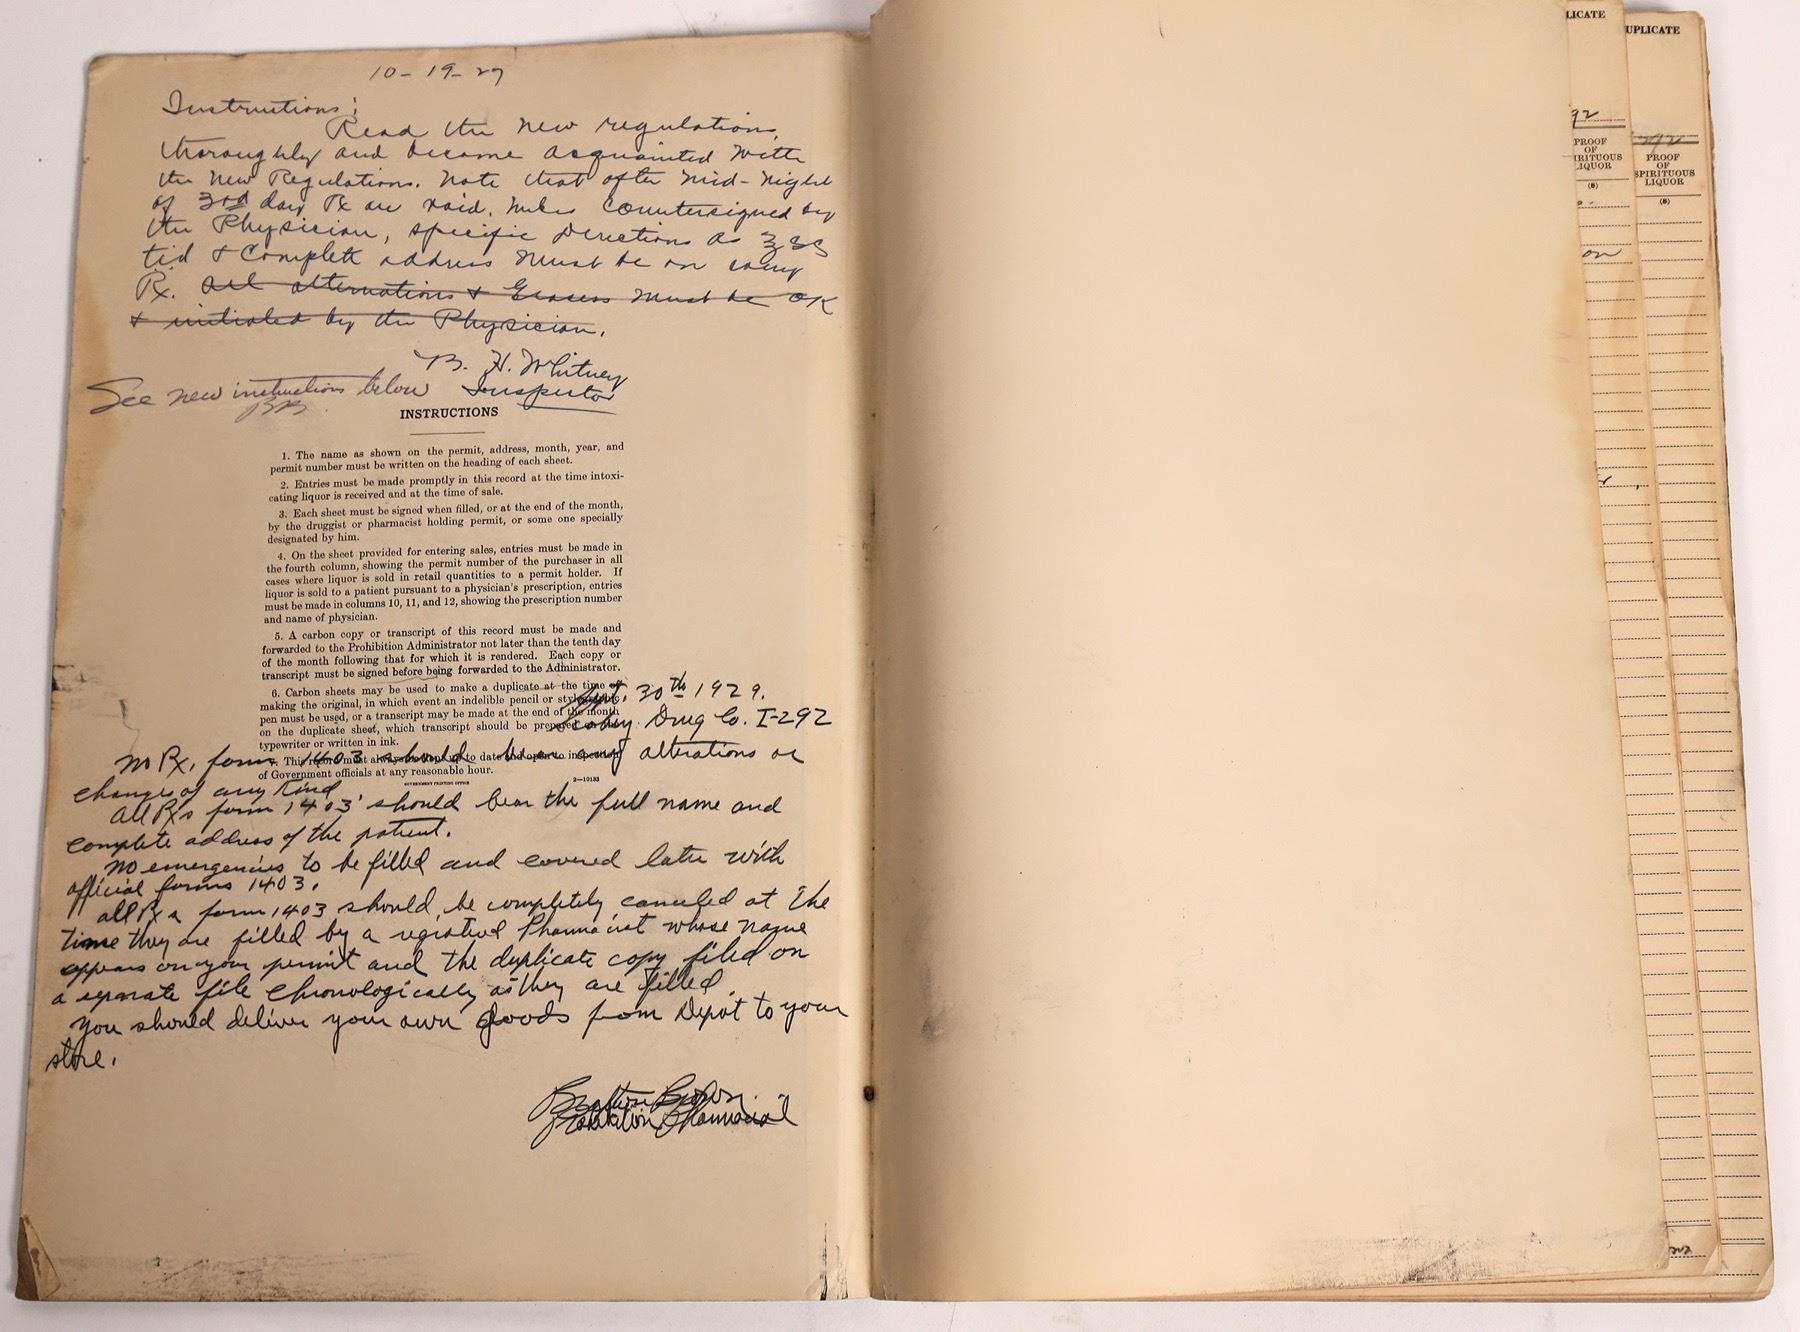 10-19-27
Instructions:
Read the new regulations,
thoroughly and become acquainted with
the new Regulations. Note that after Mid-Night
of 3rd day Rx are void. Unless countersigned by
the Physician, specific Directions as
tid & Complete address must be on every
Rx. All alternations & Erasers must be OK
& initialed by the Physician.
B. H. Whitney
See new instructions below Inspector
BB
INSTRUCTIONS
1. The name as shown on the permit, address, month, year, and
permit number must be written on the heading of each sheet.
2. Entries must be made promptly in this record at the time intoxi-
cating liquor is received and at the time of sale.
3. Each sheet must be signed when filled, or at the end of the month,
by the druggist or pharmacist holding permit, or some one specially
designated by him.
4. On the sheet provided for entering sales, entries must be made in
the fourth column, showing the permit number of the purchaser in all
cases where liquor is sold in retail quantities to a permit holder. If
liquor is sold to a patient pursuant to a physician's prescription, entries
must be made in columns 10, 11, and 12, showing the prescription number
and name of physician.
5. A carbon copy or transcript of this record must be made and
forwarded to the Prohibition Administrator not later than the tenth day
of the month following that for which it is rendered. Each copy or
transcript must be signed before being forwarded to the Administrator.
6. Carbon sheets may be used to make a duplicate at the time of
making the original, in which event an indelible pencil or
pen must be used, or a transcript may be made at the end of the month
on the duplicate sheet, which transcript should be prepared
typewriter or written in ink.
This must always up to date and open to inspection
of Government officials at any reasonable hour.
GOVERNMENT PRINTING OFFICE
2—10133
Sept. 30th 1929.
Drug Co. I-292
No Rx. form 1403 should bear any alterations or
changes of any kind
All Rxs form 1403 should bear the full name and
complete address of the patient.
No emergencies to be filled and covered later with
official forms 1403.
All Rxs form 1403 should be completely canceled at the
time they are filled by a registered Pharmacist whose name
appears on your permit and the duplicate copy filed on
a separate file chronologically as they are filled.
You should deliver your own goods from Depot to your
store.
Prohibition Pharmacist
LICATE
92
PROOF
OF
IRITUOUS
LIQUOR
(8)
on
UPLICATE
292
PROOF
OF
SPIRITUOUS
LIQUOR
(8)